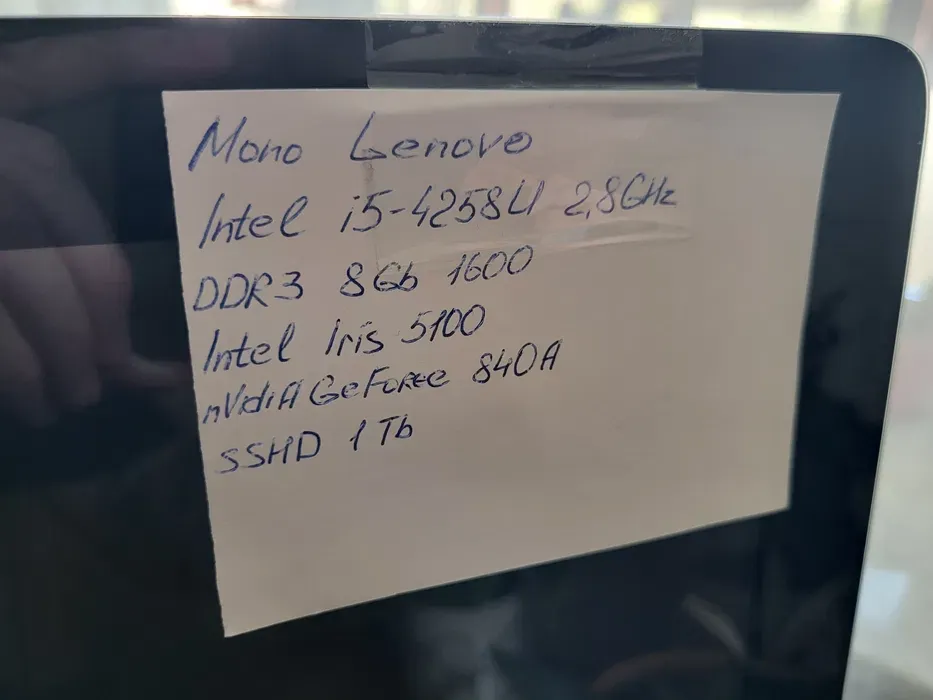 Mono Lenovo
Intel i5-4258U 2,8GHz
DDR3 8Gb 1600
Intel Iris 5100
nVidiA GeForce 840A
SSHD 1Tb